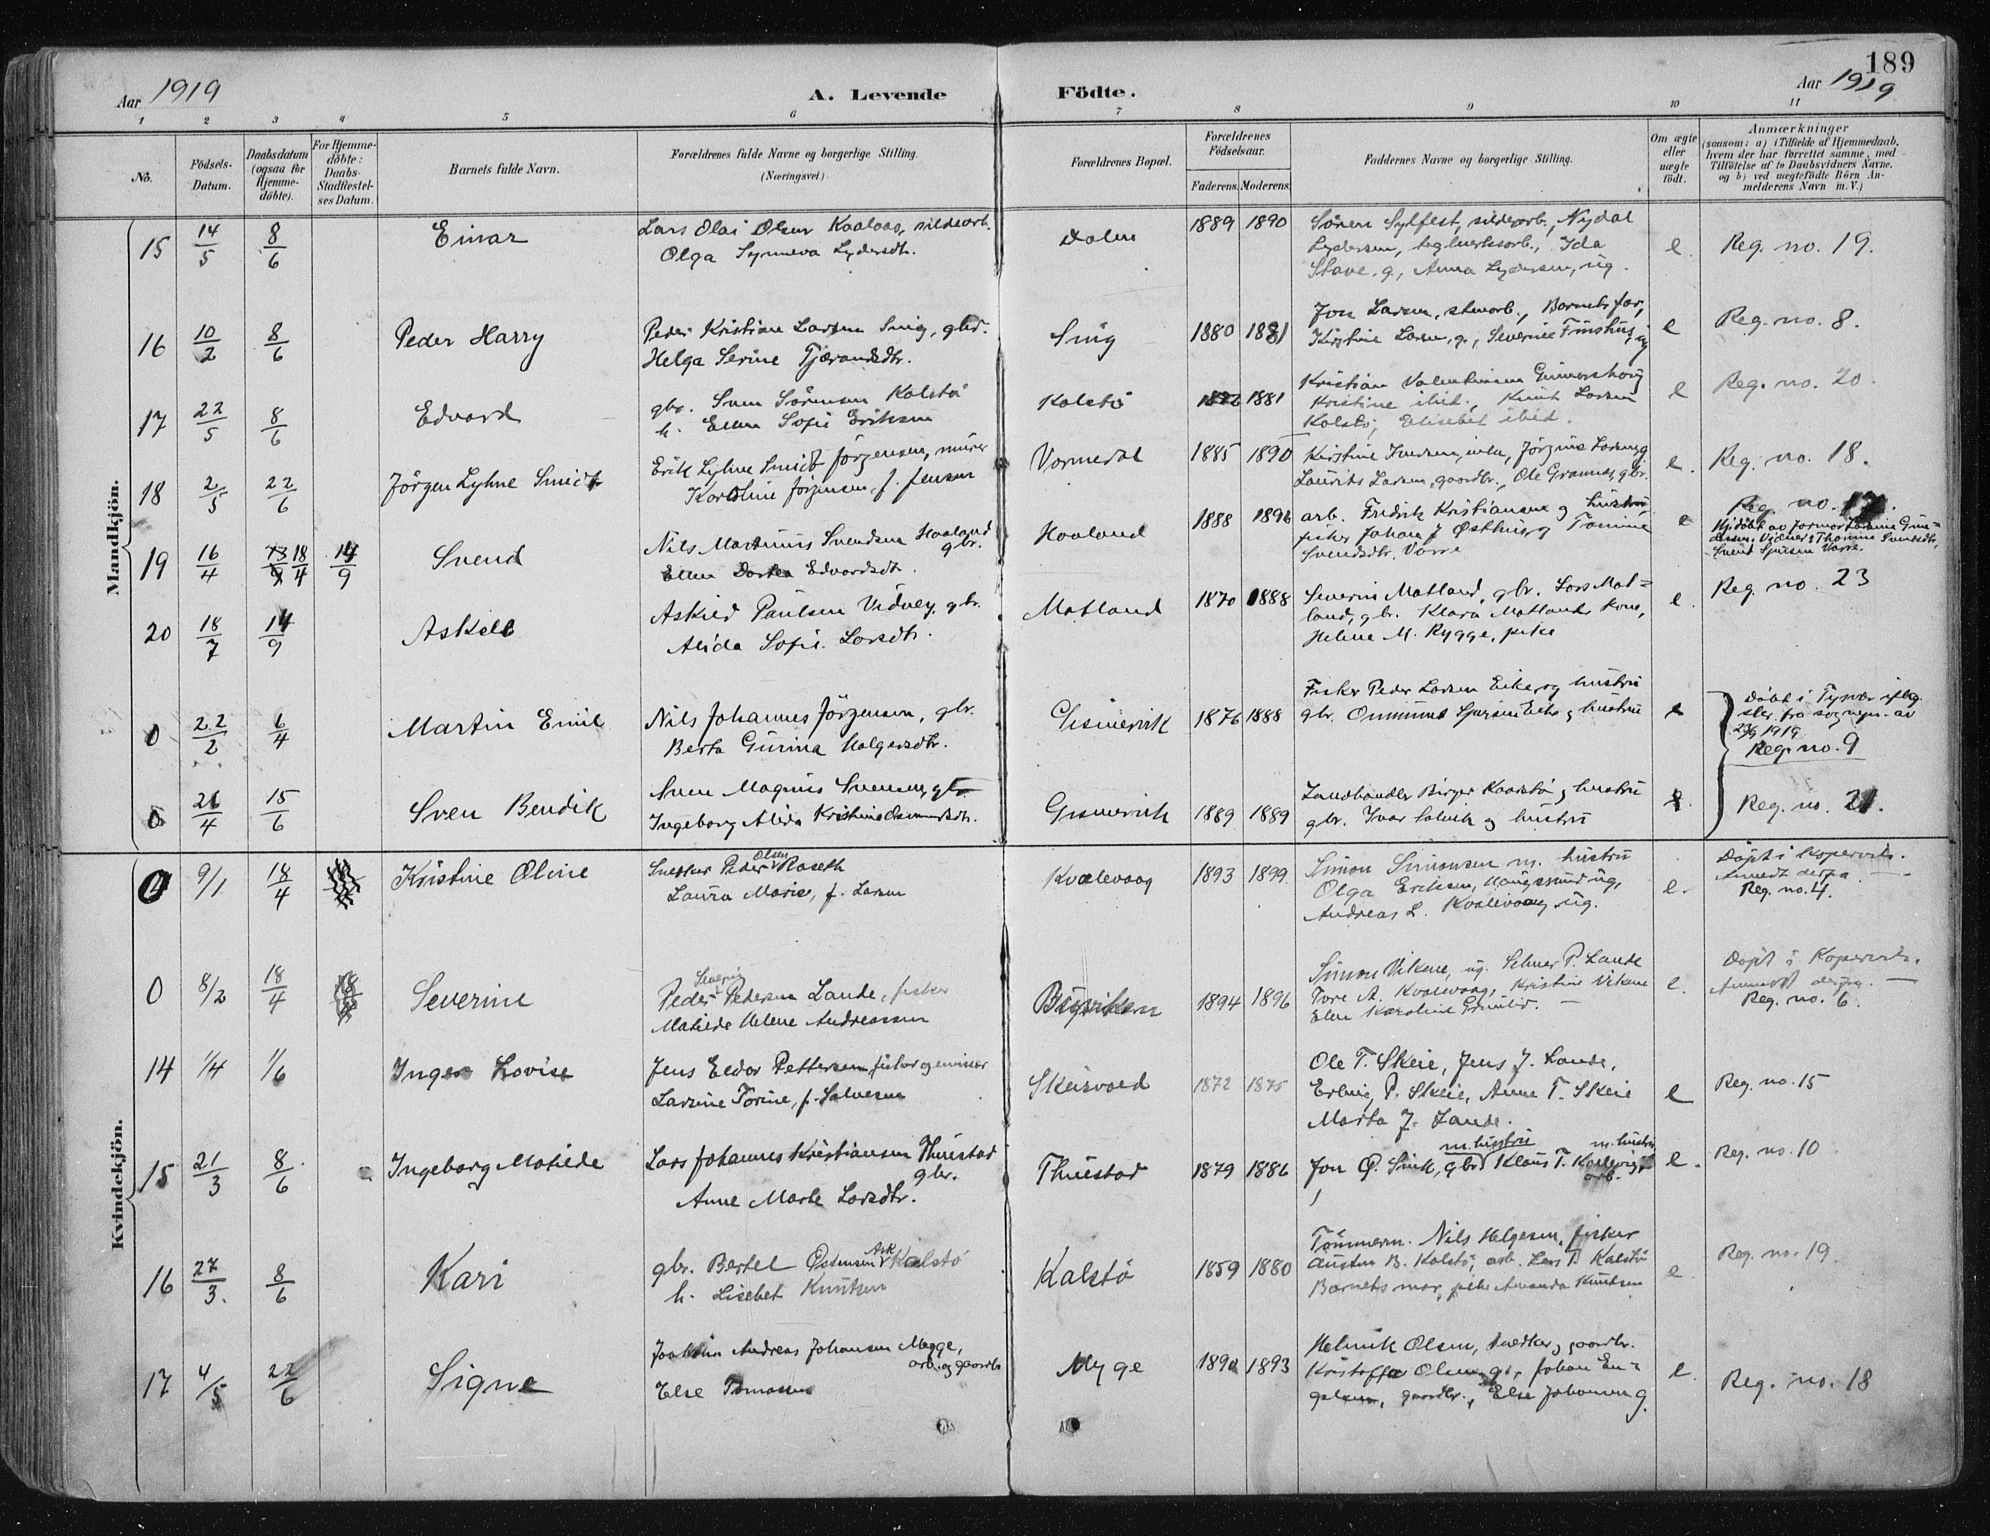 189
Aar 1919
A. Levende Födte.
Aar 1919
1 2 3 4 5 6 7 8 9 10 11
No.
Födsels-Datum.
Daabsdatum (ogsaa for Hjemme-döbte).
For Hjemme-döbte: Daabs-Stadfæstel-ses Datum.
Barnets fulde Navn.
Forældrenes fulde Navne og borgerlige Stilling.
(Næringsvei.)
Forældrenes Bopæl.
Forældrenes Födselsaar.
Faderens. Moderens.
Faddernes Navne og borgerlige Stilling.
Om ægte eller uægte födt.
Anmærkninger
(saasom: a) i Tilfælde af Hjemmedaab, hvem der har forrettet samme, med Tilföielse af to Daabsvidners Navne, og b) ved uægtefödte Börn An-melderens Navn m. V.)
Mandkjön.
15 14/5 8/6 Einar
Lars Olai Olsen Kaalaas, sildearb.
Olga Synneva Lydersdtr.
Dalen 1889 1890
Sören Sylfest, sildearb., Nydal
Lydersen, teglverksarb., Ida
Stave, g., Anna Lydersen, ug.
e. Reg. no. 19.
16 10/2 8/6 Peder Harry
Peder Kristian Larsen Snig, gbr.
Helga Serine Tjærandsdtr.
Snig 1880 1881
Jon Larsen, stenarb., Barnets far,
Kirstine Larsen, g., Severine
e Reg. no. 8.
17 22/5 8/6 Edvard
gbr. Sven Sörensen Kalstö
h. Ellen Sofie Eriksen
Kalstö 1881
Kristian Valentinsen
Kristine ibid., Knut Larsen
Kalstö, Elisabet ibid.
e Reg. no. 20.
18 2/5 22/6 Jörgen Lyhne Smidt
Erik Lyhne Smidt Jörgensen, murer
Karoline Jörgensen, f. Jensen
Vormedal 1885 1890
Kirstine Knudsen, enke, Jörgine Larsen g
Laurits Larsen, gaardbr., Ole Grannes, gbr.
e. Reg. no. 18.
19 16/4 18/4 14/9 Svend
Nils Martinius Svendsen Haaland
gbr.
Ellen Dortea Edvardsdtr.
Haaland 1888 1896
arb. Fredrik Kristiansen og hustru
fisker Johan J Østhus og Tomine
Svendsdtr. Vorre
e Reg. no. 17.
20 18/7 14/9 Askell
Askild Paulsen Vidvey, gbr.
Alida Sofie Larsdtr.
Matland 1870 1888
Severin Matland, gbr. Lars Mat=
land, gbr. Klara Matland, kone,
Helene M. Rygge, pike
e. Reg. no. 23
0 22/2 6/4 Martin Emil
Nils Johannes Jörgensen, gbr.
Berta Gurina Holgersdtr.
Gismervik 1876 1888
Fisker Peder Larsen Eike og hustru
gbr. Ommund Sjursen Eike og hustru
e Döbt i Tysvær iflg.
1919
Reg. no. 9
0 26/4 15/6 Sven Bendik
Sven Magnus Svensen, gbr
Ingeborg Alida Kristine Osmundsdtr.
Gismervik 1889 1889
Landhandler Birger Kaarstö og hustru
gbr. Ivar og hustru
e. Reg. no. 21.
Kvindekjön.
0 9/1 18/4 Kristine Oline
Snekker Peder Olsen Raseth
Laura Marie, f. Larsen
Kvalevaag 1893 1899.
Simon Simonsen m. hustru
Olga Eriksen, Haugesund ug,
Andreas L. Kvalevaag ug.
e. Döpt i Kopervik.
Anmeldt derfra.
Reg. no. 4.
0 8/2 18/4 Severine
Peder Severin Pedersen Lande, fisker
Matilde Helene Andreassen
Bugviken 1894 1896
Simon Vikene, ug. Selmer P. Lande
Tore A. Kvalevaag, Kristine Vikene
Elen Karoline
e. Döpt i Kopervik.
Anmeldt derfra.
Reg. no. 6.
14 1/4 1/6 Inger Lovise
Jens Eldor Pettersen fisker og emissær
Larsine Torine, f. Salvesen
Skeisvold 1872 1875
Ole T. Skeie, Jens J. Lande,
Erling P. Skeie, Anne T. Skeie
Marta J. Lande.
e Reg. no. 15
15 21/3 8/6 Ingeborg Matilde
Lars Johannes Kristiansen Thuestad
gbr.
Anne Marte Larsdtr.
Thuestad 1879 1886
m. hustru m. hustru
Jon O. Snik, gbr Klaus T. Kallevig
arb.
e. Reg. no. 10
16 27/3. 8/6 Kari
gbr. Bertel Östensen Ask Kalstö
h. Lisebet Knutsen
Kalstö 1859 1880
Tömmerm. Nils Helgesen, fisker
Austen B. Kalstö, arb. Lars T. Kalstö
Barnets mor, pike Amanda Knutsen
e. Reg. no. 19.
17 4/5 22/6 Signe
Joakim Andreas Johansen Mygge,
arb. og gaardbr
Else Tomasen
Myge 1890 1893
Helmik Olsen, snedker og gaardbr.
Kristoffa Olsen g., Johan En=
gelsen, gaardbr., Else Johannesen g.
e. Reg. no. 18